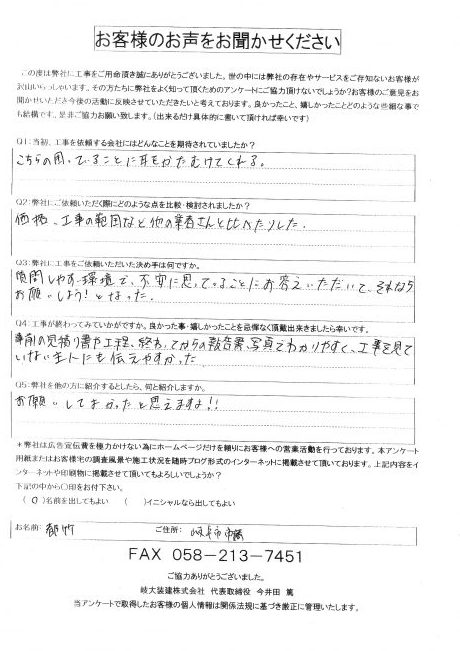 お客様のお声をお聞かせください
この度は弊社に工事をご用命頂き誠にありがとうございました。世の中には弊社の存在やサービスをご存知ないお客様が
沢山いらっしゃいます。その方たちに弊社をよく知って頂くためのアンケートにご協力頂けないでしょうか?お客様のご意見をお
聞かせいただき今後の活動に反映させていただきたいと考えております。良かったこと、嬉しかったことどのような些細な事で
も結構です。是非ご協力お願い致します。(出来るだけ具体的に書いて頂ければ幸いです)
Q1:当初、工事を依頼する会社にはどんなことを期待されていましたか?
こちらの困っていることに耳をかたむけてくれる。
Q2:弊社にご依頼いただく際にどのような点を比較・検討されましたか?
価格、工事の範囲など他の業者さんと比べたりした。
Q3:弊社に工事をご依頼いただいた決め手は何ですか。
質問しやすい環境で、不安に思っていることにお答えいただいて、それなら
お願いしよう!となった。
Q4:工事が終わってみていかがですか。良かった事・嬉しかったことを忌憚なく頂戴出来ましたら幸いです。
事前の見積り書や工程、終わってからの報告書、写真でわかりやすく、工事を見て
いない主人にも伝えやすかった
Q5:弊社を他の方に紹介するとしたら、何と紹介しますか。
お願いしてよかったと思えますよ!!
*弊社は広告宣伝費を極力かけない為にホームページだけを頼りにお客様への営業活動を行っております。本アンケート
用紙またはお客様宅の調査風景や施工状況を随時ブログ形式のインターネットに掲載させて頂いております。上記内容をイ
ンターネットや印刷物に掲載させて頂いてもよろしいでしょうか?
下記の中から〇印をお付下さい。
(〇)名前を出してもよい ( )イニシャルなら出してもよい
お名前: 都竹 ご住所: 岐阜市
FAX 058-213-7451
ご協力ありがとうございました。
岐大装建株式会社 代表取締役 今井田 篤
当アンケートで取得したお客様の個人情報は関係法規に基づき厳正に管理いたします。